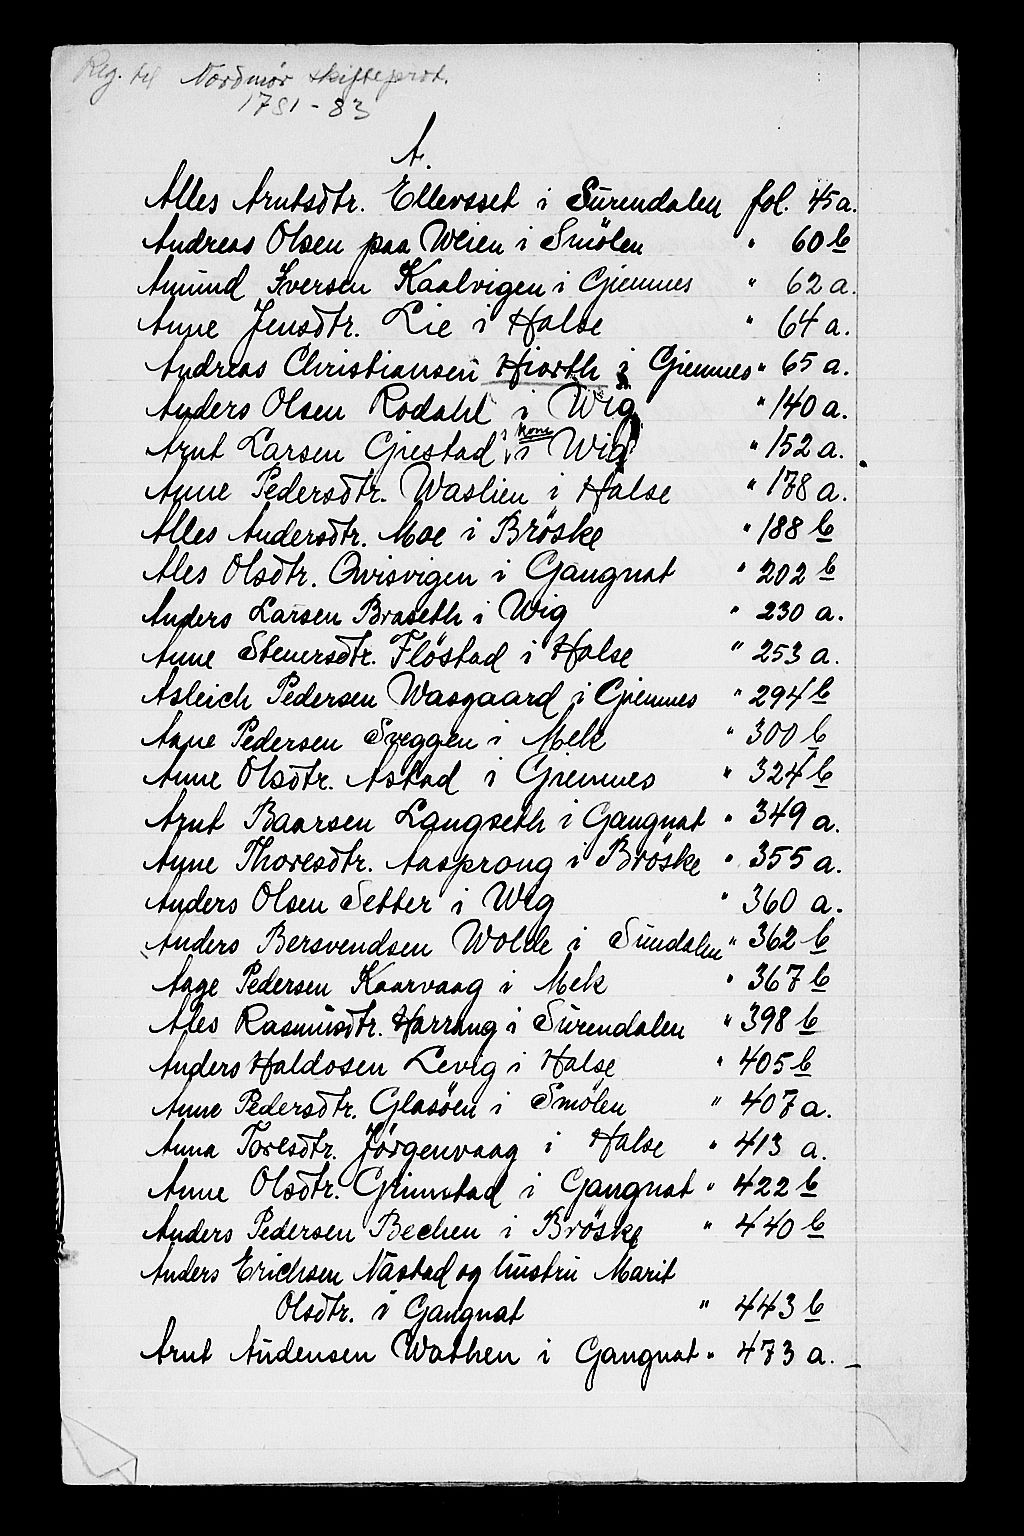 Reg. til Nordmør skifteprot.
1781-83
A.
Alles Arntsdtr. Ellevsset i Surendalen fol. 45 a.
Andreas Olsen paa Weien i Smölen " 60 b
Amund Iversen Kaalvigen i Gjemnes " 62 a.
Anne Jensdtr. Lie i Halse " 64 a.
Andreas Christiansen Hiorth i Gjemnes " 65 a.
Anders Olsen Rodahl i Wig " 140 a.
Arnt Larsen Gjestad's kone i Wig " 152 a.
Anne Pedersdtr. Waslien i Halse " 178 a.
Alles Andersdtr. Moe i Bröske " 188 b
Ales Olsdtr. Qvisvigen i Gangnat " 202 b
Anders Larsen Braseth i Wig " 230 a.
Anne Steuersdtr. Flöstad i Halse " 253 a.
Asleich Pedersen Wasgaard i Gjemnes " 294 b
Aage Pedersen Sveggen i Mek " 300 b
Anne Olsdtr. Astad i Gjemnes " 324 b
Arnt Baarsen Langseth i Gangnat " 349 a.
Anne Thoresdtr. Aasprong i Bröske " 355 a.
Anders Olsen Setter i Wig " 360 a.
Anders Bersvendsen Wolde i Sundalen " 362 b
Aage Pedersen Kaarvaag i Mek " 367 b
Ales Rasmusdtr. Harrang i Surendalen " 398 b
Anders Haldosen Levig i Halse " 405 b
Anne Pedersdtr. Glasöen i Smölen " 407 a.
Anna Toresdtr. Jörgenvaag i Halse " 413 a.
Anne Olsdtr. Grimstad i Gangnat " 422 b
Anders Pedersen Bechen i Bröske " 440 b
Anders Erichsen Nastad og hustru Marit
Olsdtr. i Gangnat " 443 b
Arnt Audensen Wathen i Gangnat " 473 a.